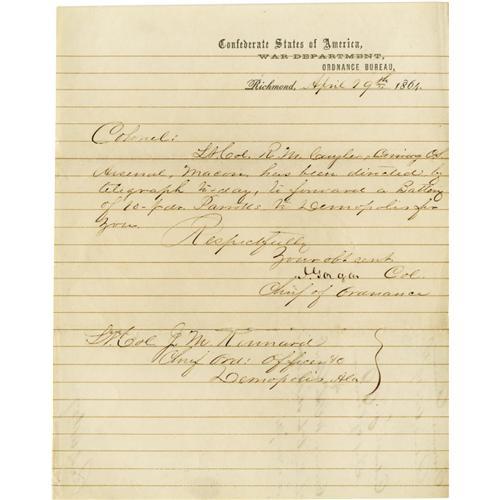 Confederate States of America,
WAR DEPARTMENT,
ORDNANCE BUREAU,
Richmond, April 29th 1864.
Colonel:
Lt Col. R. M. Cuyler, Comdg C.S.
Arsenal, Macon, has been directed by
telegraph to-day, to forward a Battery
of 10-pdr. Parrotts to Demopolis for
you.
Respectfully
Your obt servt
J. Gorgas Col.
Chief of Ordnance
Lt Col J. M. Kennard
Chief Ord: Officer &c
Demopolis, Ala